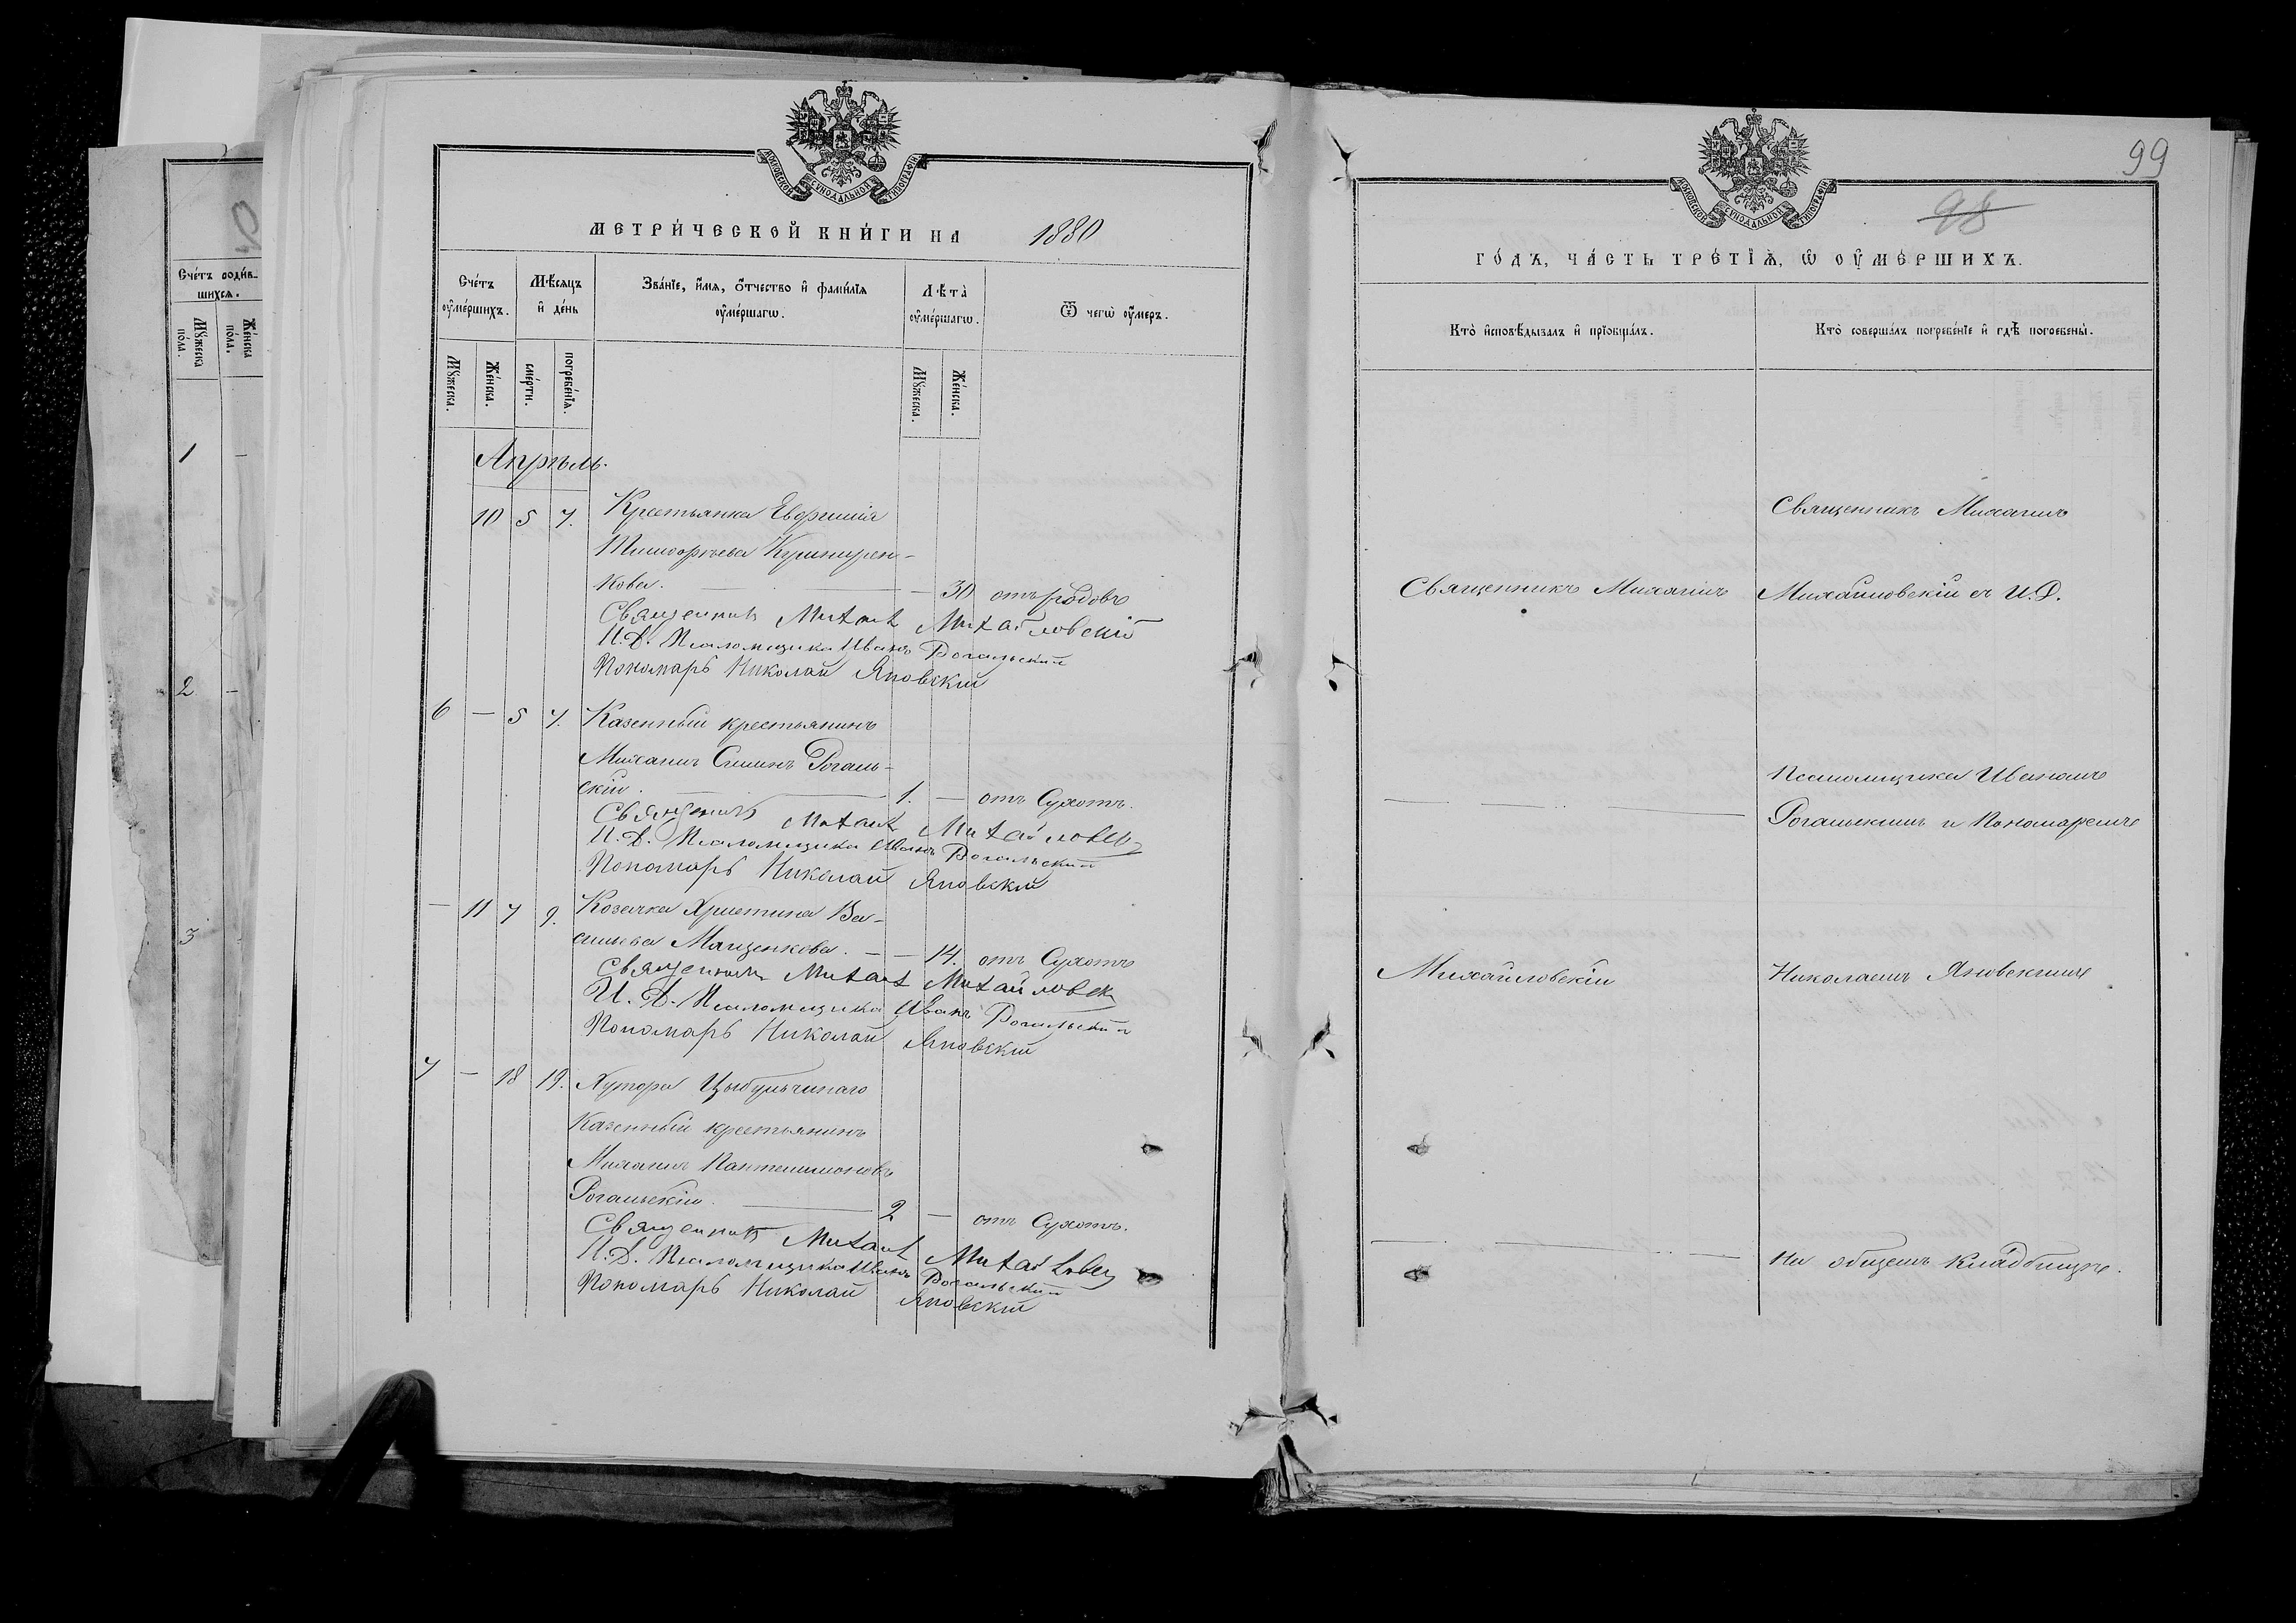 Счетъ родив-
шихся.
Мужеска пола.
Женска пола.
1 —
2 —
3
МОСКОВСКОЙ СУНОДАЛЬНОЙ ТИПОГРАФІИ
МЕТРИЧЕСКОЙ КНИГИ НА 1880
Счетъ оумершихъ.
Мѣсяцъ и день
Званіе, имя, отчество и фамилія оумершагw.
Лѣта оумершагw.
Ѿ чегw оумеръ.
Мужеска.
Женска.
смерти.
погребенія.
Мужеска.
Женска.
Апрѣль.
10 5 7. Крестьянка Евфимія
Тимофѣева Кушнирен-
кова. — 30 отъ родовъ
Священникъ Михаилъ Михайловскій
И.Д. Псаломщика Иванъ Рогальскій
Пономарь Николай Яновскій
6 — 5 7. Казенный крестьянинъ
Михаилъ Симинъ Рогаль-
скій. 1. — отъ Сухотъ.
Священникъ Михаилъ Михайловск
И.Д. Псаломщика Иванъ Рогальскій
Пономарь Николай Яновскій
— 11 7 9. Козачка Христина Ва-
сильева Мащенкова. — — 14. отъ Сухотъ
Священникъ Михаилъ Михайловск
И.Д. Псаломщика Иванъ Рогальскій
Пономарь Николай Яновскій
7 — 18 19. Хутора Цыбульчинаго
Казенный крестьянинъ
Михаилъ Пантелимоновъ
Рогальскій. 2 — отъ Сухотъ.
Священникъ Михаилъ
И.Д. Псаломщика Иванъ Рогальскій
Пономарь Николай Яновскій
99
98
МОСКОВСКОЙ СУНОДАЛЬНОЙ ТИПОГРАФІИ
ГОДЪ, ЧАСТЬ ТРЕТІЯ, Ѡ ОУМЕРШИХЪ.
Кто исповѣдывалъ и пріобщалъ.
Кто совершалъ погребеніе и гдѣ погребены.
Священникъ Михаилъ
Священникъ Михаилъ
Михайловскій съ И.Д.
Псаломщика Иваномъ
Рогальскимъ и Пономаремъ
Михайловскій
Николаемъ Яновскимъ
На общемъ кладбищѣ.